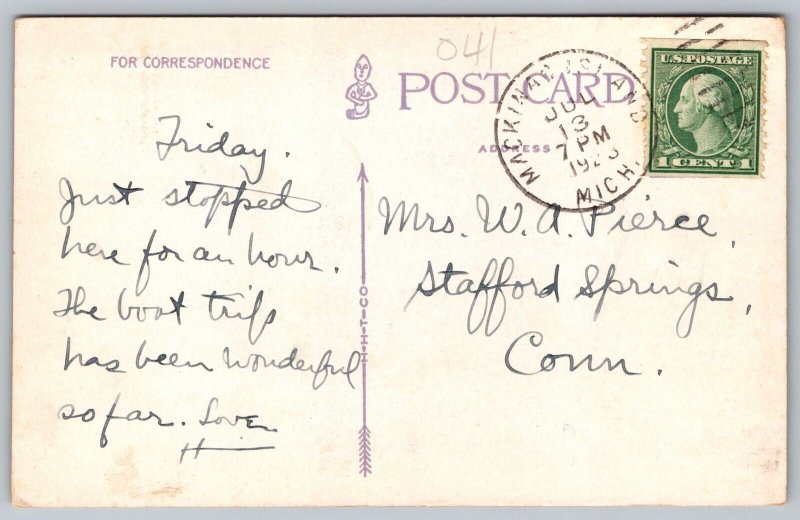 FOR CORRESPONDENCE
Friday.
Just stopped
here for an hour.
The boat trip
has been wonderful
so far. Love
H
H-H-T-CO.
041
POST CARD
ADDRESS
MACKINAC ISLAND
JUL
13
7 PM
MICH.
U.S. POSTAGE
1 CENT 1
Mrs. W. A. Pierce,
Stafford Springs,
Conn.